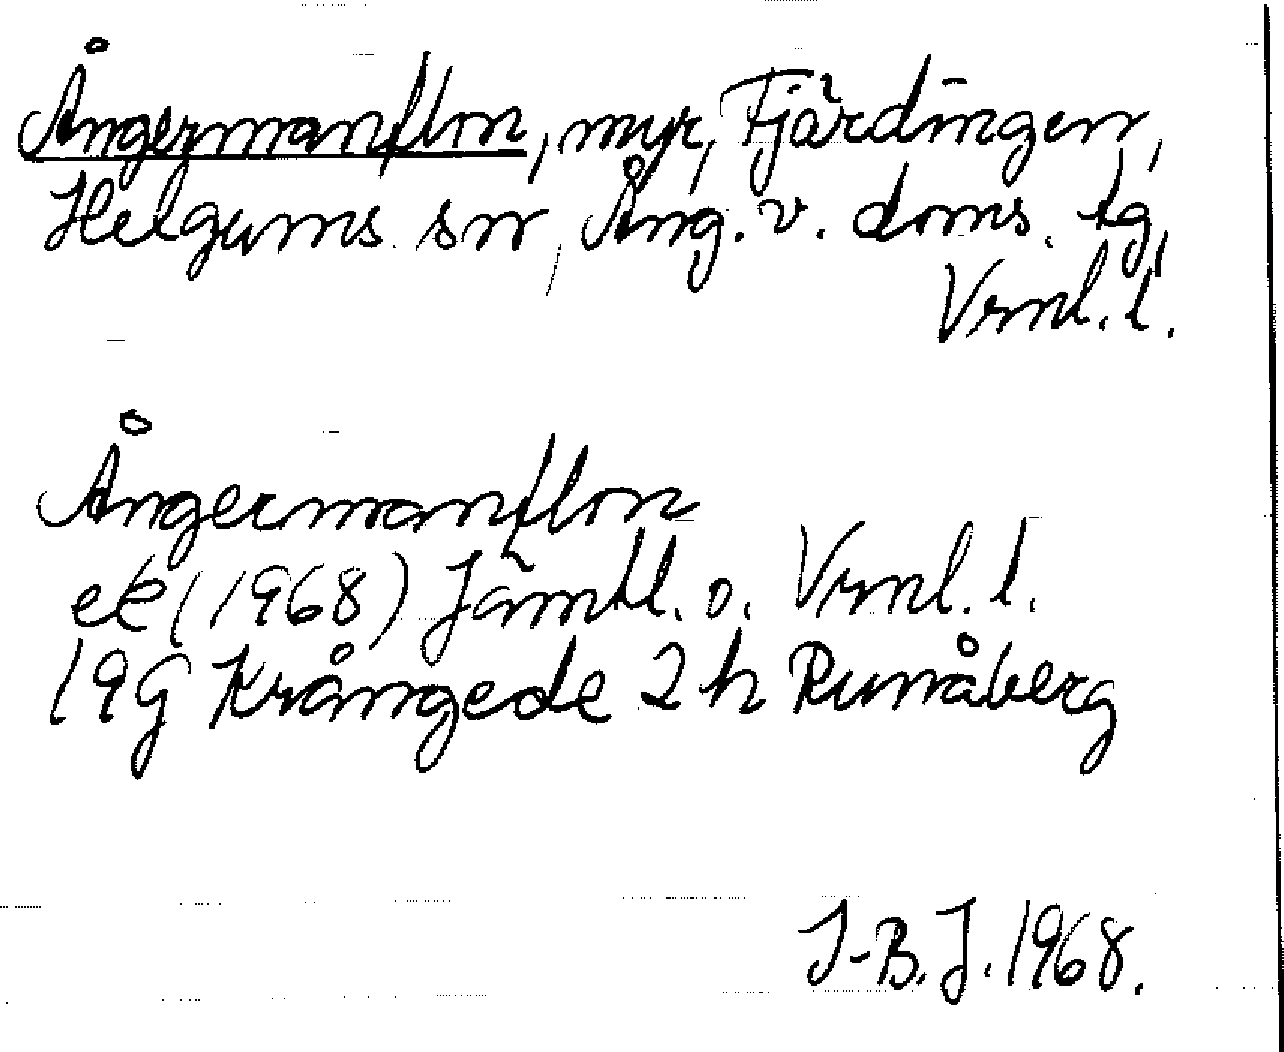 Ångermanflon, myr, Fjärdingen,
Helgums sn, Ång. v. doms. tg,
Vrnl. l.
Ångermanflon
ek (1968) Jämtl. o. Vrnl. l.
19G Krångede 2 h Runåberg
I-B. J. 1968.